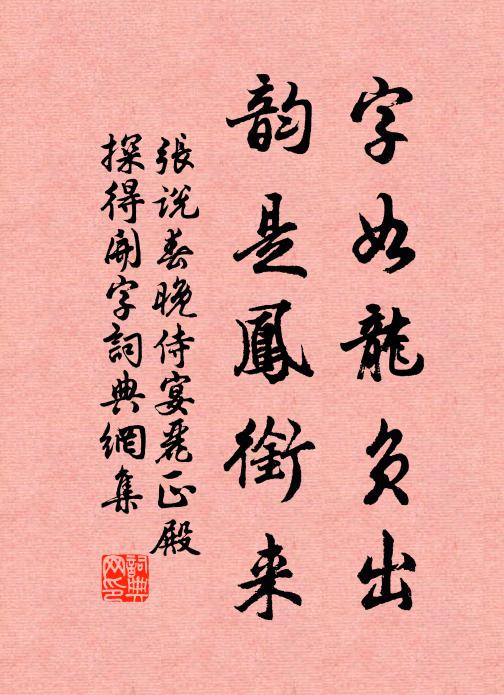 字如龍負出
韵是鳳銜来
張説春晚侍宴麗正殿
探得開字詞典網集
詞典
网印